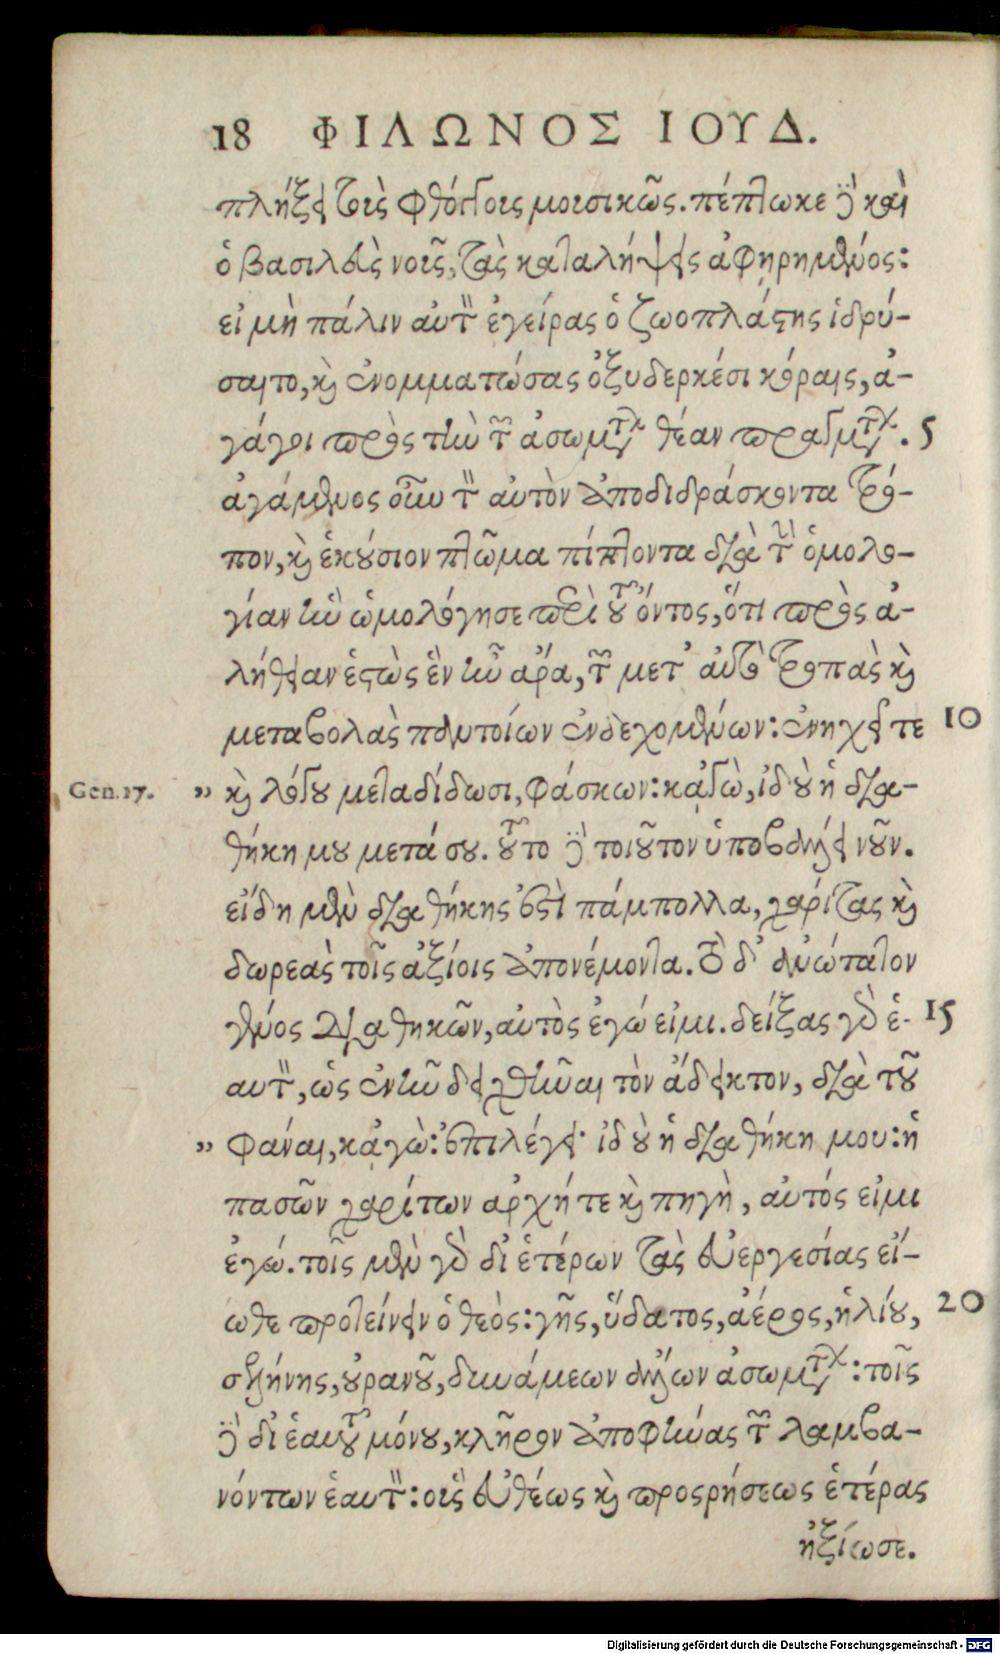 18 ΦΙΛΩΝΟΣ ΙΟΥΔ.
πλήξει τοῖς φθόγγοις μουσικῶς. πέπτωκε δὲ καὶ
ὁ βασιλεὺς νοῦς, τὰς καταλήψεις ἀφηρημένος:
εἰ μὴ πάλιν αὐτὸν ἐγείρας ὁ ζωοπλάστης ἱδρύ-
σαιτο, καὶ ἐνομματώσας ὀξυδερκέσι κόραις, ἀ-
γάγοι πρὸς τὴν τῶν ἀσωμάτων θέαν πραγμάτων. 5
ἀγάμενος οὖν τὸν αὐτὸν ἀποδιδράσκοντα τρό-
πον, καὶ ἑκούσιον πτῶμα πίπτοντα διὰ τὴν ὁμολο-
γίαν ἣν ὡμολόγησε περὶ τοῦ ὄντος, ὅτι πρὸς ἀ-
λήθειαν ἑστὼς ἓν ἦν ἄρα, τῶν μετ' αὐτὸ τροπὰς καὶ
μεταβολὰς παντοίων ἐνδεχομένων: ἐνηχεῖ τε 10
Gen. 17. " καὶ λόγου μεταδίδωσι, φάσκων: κἀγὼ, ἰδοὺ ἡ δια-
θήκη μου μετά σου. τοῦτο δὲ τοιοῦτον ὑποβάλλει νοῦν.
εἴδη μὲν διαθήκης ἐστὶ πάμπολλα, χάριτας καὶ
δωρεὰς τοῖς ἀξίοις ἀπονέμοντα. τὸ δ' ἀνώτατον
γένος διαθηκῶν, αὐτὸς ἐγώ εἰμι. δείξας γὰρ ἑ- 15
αυτὸν, ὡς ἐνῆν δειχθῆναι τὸν ἄδεικτον, διὰ τοῦ
" φάναι, κἀγὼ: ἐπιλέγει· ἰδοὺ ἡ διαθήκη μου: ἡ
πασῶν χαρίτων αρχή τε καὶ πηγὴ, αὐτός εἰμι
ἐγώ. τοῖς μὲν γὰρ δι' ἑτέρων τὰς εὐεργεσίας εἴ-
ωθε προτείνειν ὁ θεὸς: γῆς, ὕδατος, ἀέρος, ἡλίου, 20
σελήνης, οὐρανοῦ, δυνάμεων ἄλλων ἀσωμάτων: τοῖς
δὲ δι' ἑαυτοῦ μόνου, κλῆρον ἀποφήνας τῶν λαμβα-
νόντων ἑαυτὸν: οὓς εὐθέως καὶ προσρήσεως ἑτέρας
ἠξίωσε.
Digitalisierung gefördert durch die Deutsche Forschungsgemeinschaft - DFG